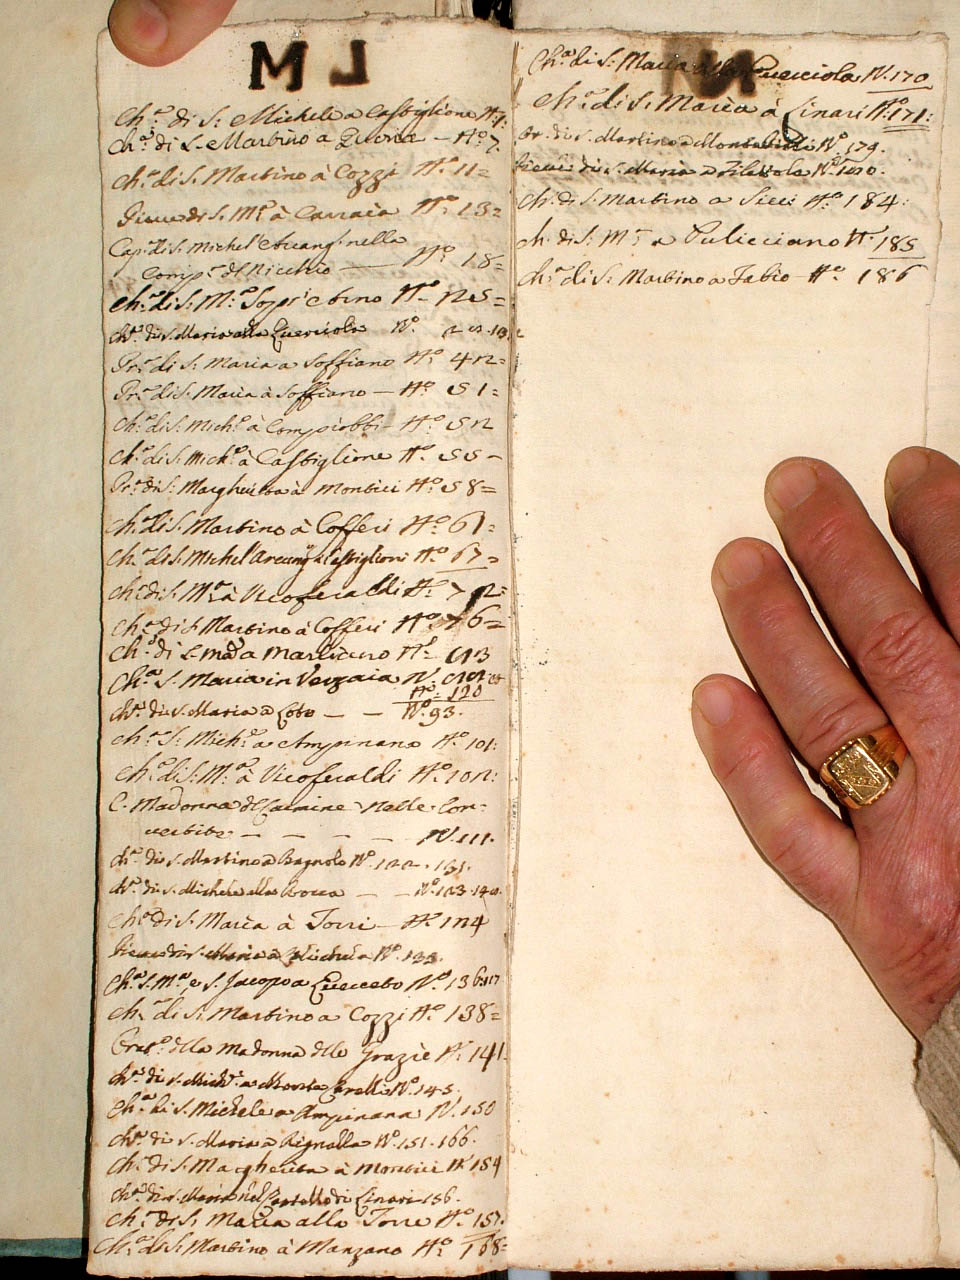 M
Ch.ª di S. Michele a Castiglione N.º 1.
Ch.ª di S. Martino a — N.º 7.
Ch.ª di S. Martino à Cozzi N.º 11=
Pieve di S. M.ª à Carraia N.º 13=
Cap. di S. Michel' Arcang. nella
Comp.ª di — N.º 18=
Ch.ª di S. M.ª N.º 25=
Ch.ª di S. Maria alla Querciola N.º
Pr.ª di S. Maria a Soffiano N.º 42=
Pr.ª di S. Maria à Soffiano — N.º 51=
Ch.ª di S. Mich.e à Compiobbi — N.º 52
Ch.ª di S. Mich.e à Castiglione N.º 55—
Pr.ª di S. Margherita à Montici N.º 58=
Ch.ª di S. Martino à Cofferi N.º 61=
Ch.ª di S. Michel' Arcang. à Castiglioni N.º 67=
Ch.ª di S. M.ª à Vicoferaldi N.º 72=
Ch.ª di S. Martino à Cofferi N.º 76=
Ch.ª di S. Mad.ª a N.º 93
Ch.ª S. Maria in Verzaia N.
N.º 120
Ch.ª di S. Maria a Coto — — N.º 93.
Ch.ª S. Mich.e a Ampinana N.º 101:
Ch.ª di S. M.ª à Vicoferaldi N.º 102:
C. Madonna del Carmine nelle Con-
vertite — — — — N. 111.
Ch.ª di S. Martino a Bagnolo N.º 122. 131.
Ch.ª di S. Michele alla Rocca — — N.º 123. 140.
Ch.ª di S. Maria à Torri — N.º 124
Pieve di S. Maria à N.º 133.
Ch.ª S. M.ª, e S. Jacopo a Querceto N.º 136.
Ch.ª di S. Martino a Cozzi N.º 138=
della Madonna delle Grazie N.º 141.
Ch.ª di S. Mich.e a Morta N.º 145.
Ch.ª di S. Michele a Ampinana N. 150
Ch.ª di S. Maria a Rignalla N.º 151. 166.
Ch.ª di S. Margherita à Montici N.º 154
Ch.ª di S. Maria nel Castello di Linari 156.
Ch.ª di S. Maria alla Torre N.º 157.
Ch.ª di S. Martino à Manzano N.º 168=
Ch.ª di S. Maria alla Querciola N. 170
Ch.ª di S. Maria à Linari N.º 171:
di S. Martino a N.º 179.
Pieve di S. Maria a Filettole N.º 180.
Ch. di S. Martino a Sieci N.º 184.
Ch. di S. M.ª a Pulicciano N.º 185
Ch.ª di S. Martino a Fabio — N.º 186